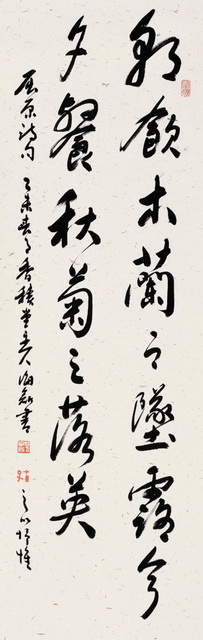 朝飲木蘭之墜露兮
夕餐秋菊之落英
屈原詩句 乙未春月香積堂主人海銘書